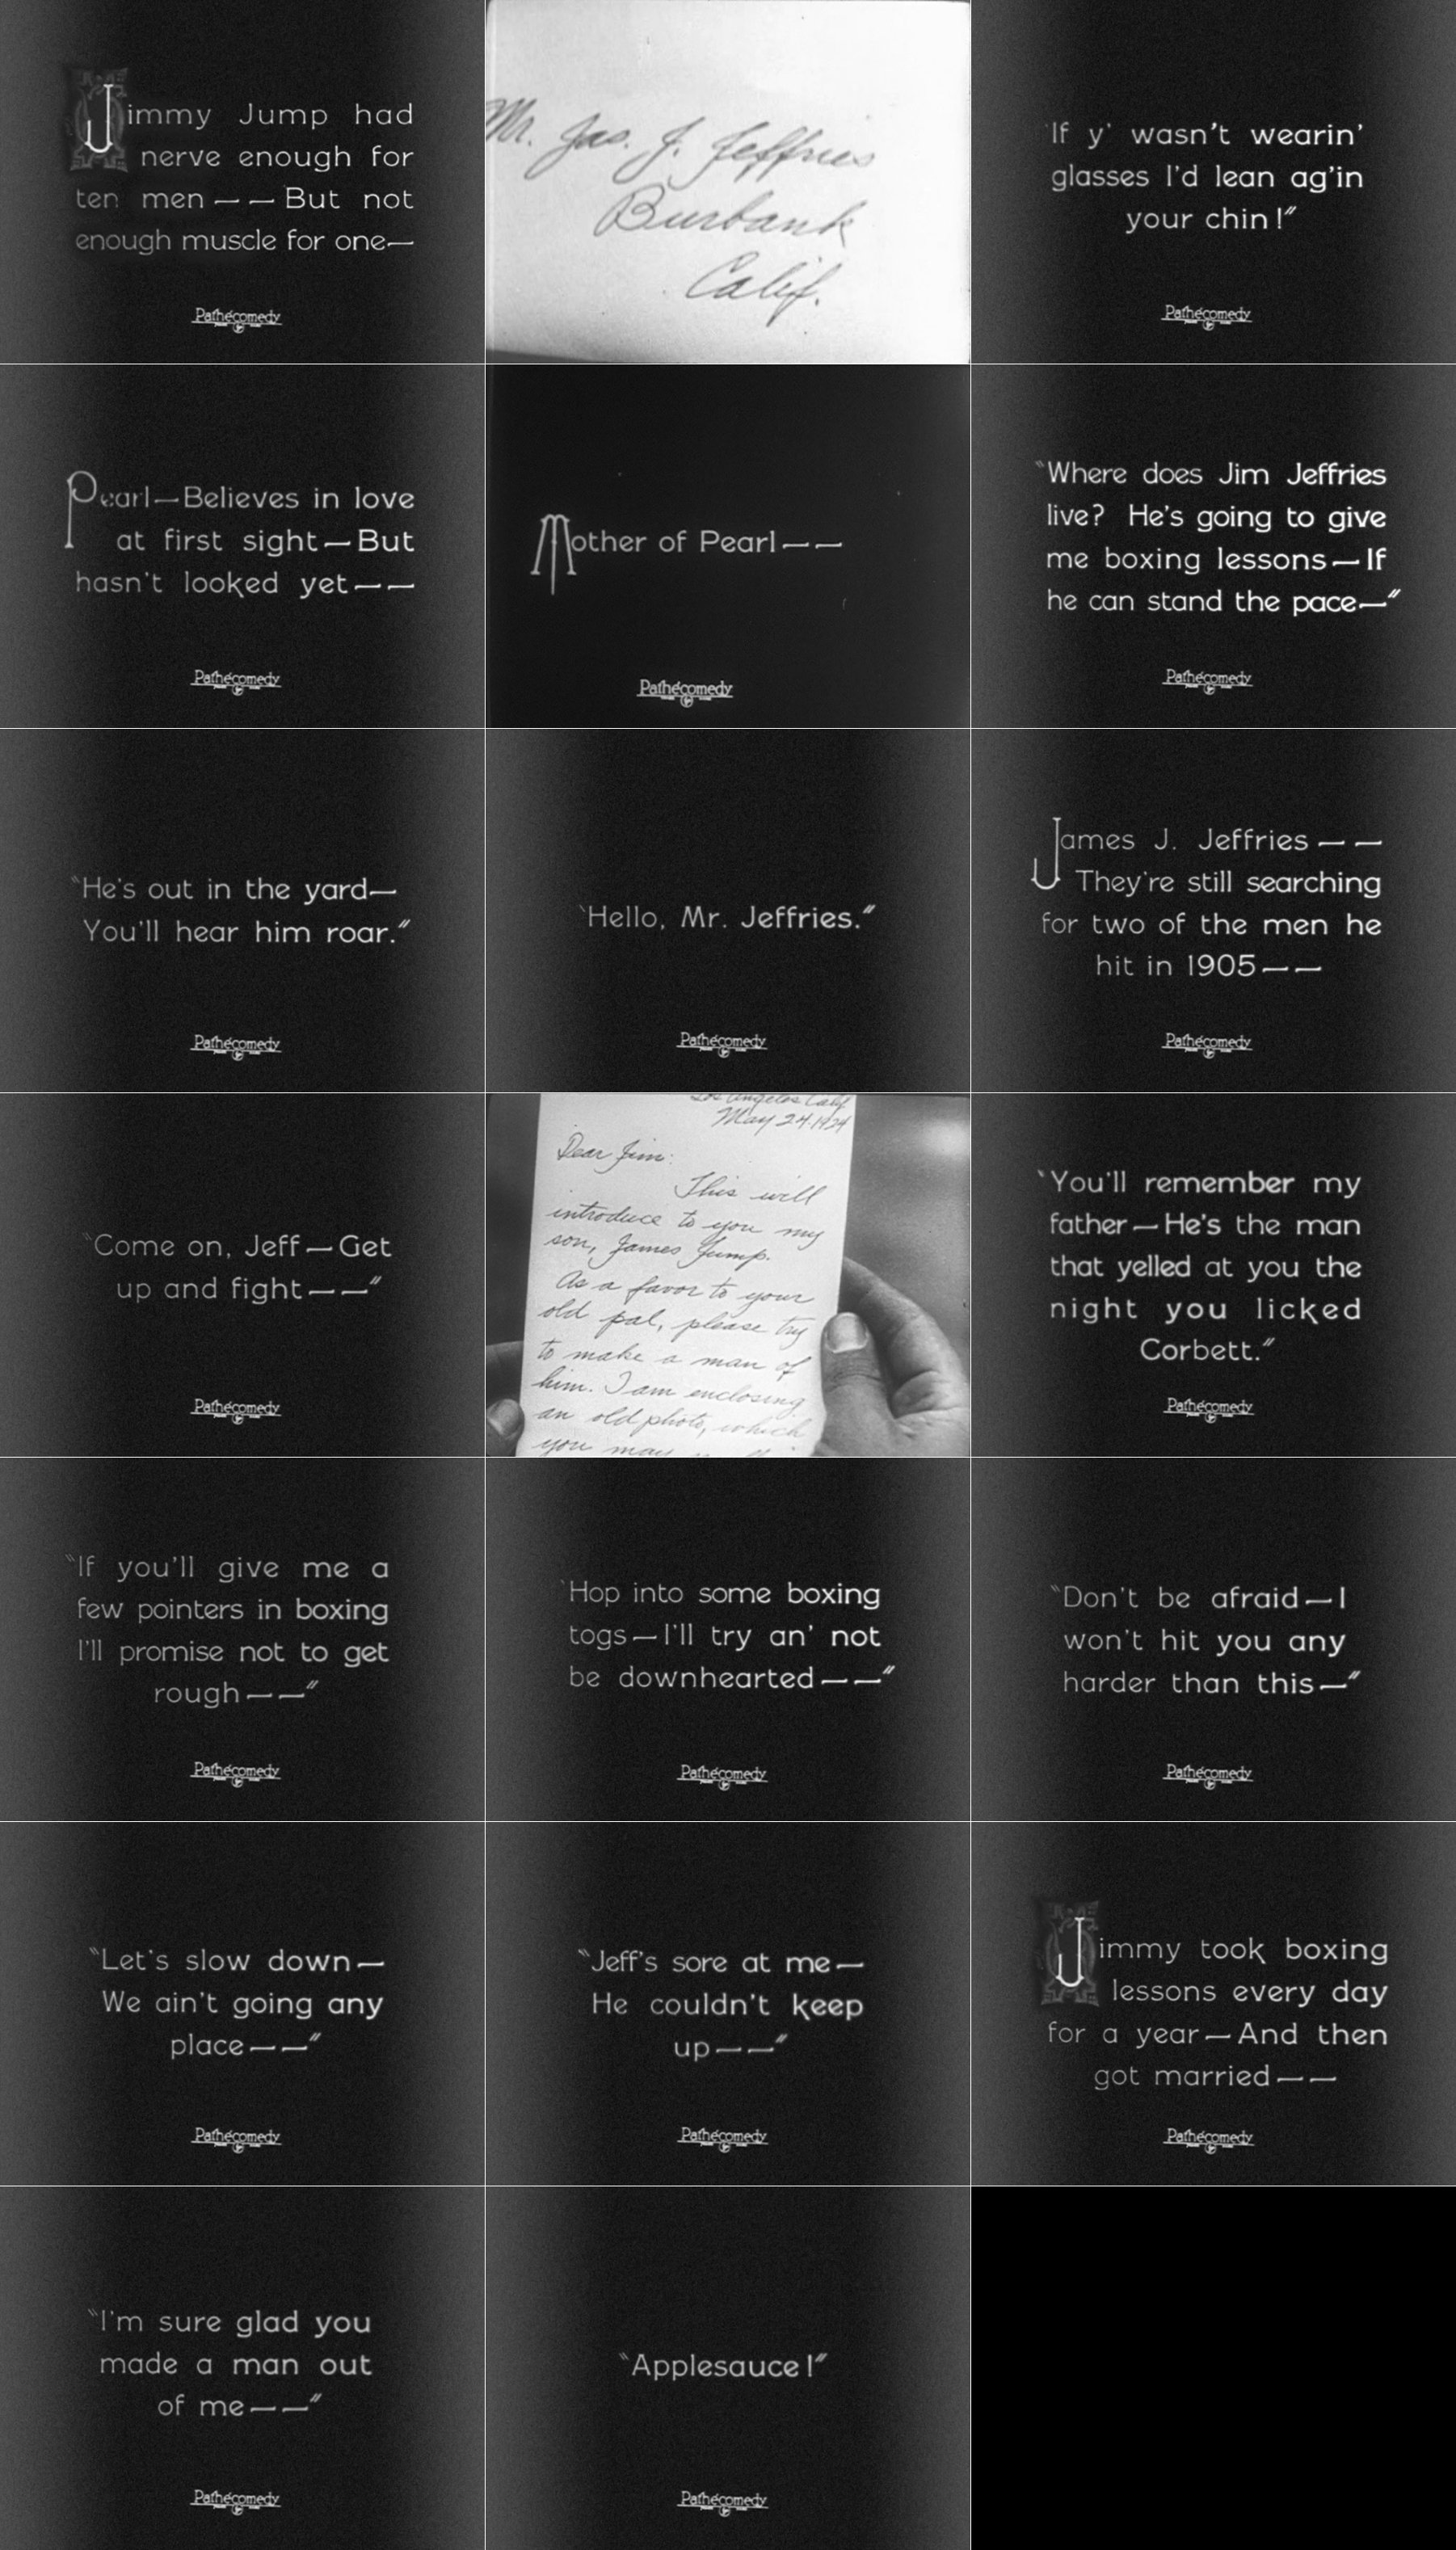 Jimmy Jump had
nerve enough for
ten men — — But not
enough muscle for one—
Pathécomedy
Mr. Jas. J. Jeffries
Burbank
Calif.
"If y' wasn't wearin'
glasses I'd lean ag'in
your chin!"
Pathécomedy
Pearl—Believes in love
at first sight—But
hasn't looked yet — —
Pathécomedy
Mother of Pearl — —
Pathécomedy
"Where does Jim Jeffries
live? He's going to give
me boxing lessons—If
he can stand the pace—"
Pathécomedy
"He's out in the yard—
You'll hear him roar."
Pathécomedy
"Hello, Mr. Jeffries."
Pathécomedy
James J. Jeffries — —
They're still searching
for two of the men he
hit in 1905 — —
Pathécomedy
"Come on, Jeff—Get
up and fight — —"
Pathécomedy
Los Angeles Calif
May 24. 1924
Dear Jim:
This will
introduce to you my
son, James Jump.
As a favor to your
old pal, please try
to make a man of
him. I am enclosing
an old photo, which
you may
"You'll remember my
father—He's the man
that yelled at you the
night you licked
Corbett."
Pathécomedy
"If you'll give me a
few pointers in boxing
I'll promise not to get
rough — —"
Pathécomedy
"Hop into some boxing
togs—I'll try an' not
be downhearted — —"
Pathécomedy
"Don't be afraid—I
won't hit you any
harder than this—"
Pathécomedy
"Let's slow down—
We ain't going any
place — —"
Pathécomedy
"Jeff's sore at me—
He couldn't keep
up — —"
Pathécomedy
Jimmy took boxing
lessons every day
for a year—And then
got married — —
Pathécomedy
"I'm sure glad you
made a man out
of me — —"
Pathécomedy
"Applesauce!"
Pathécomedy